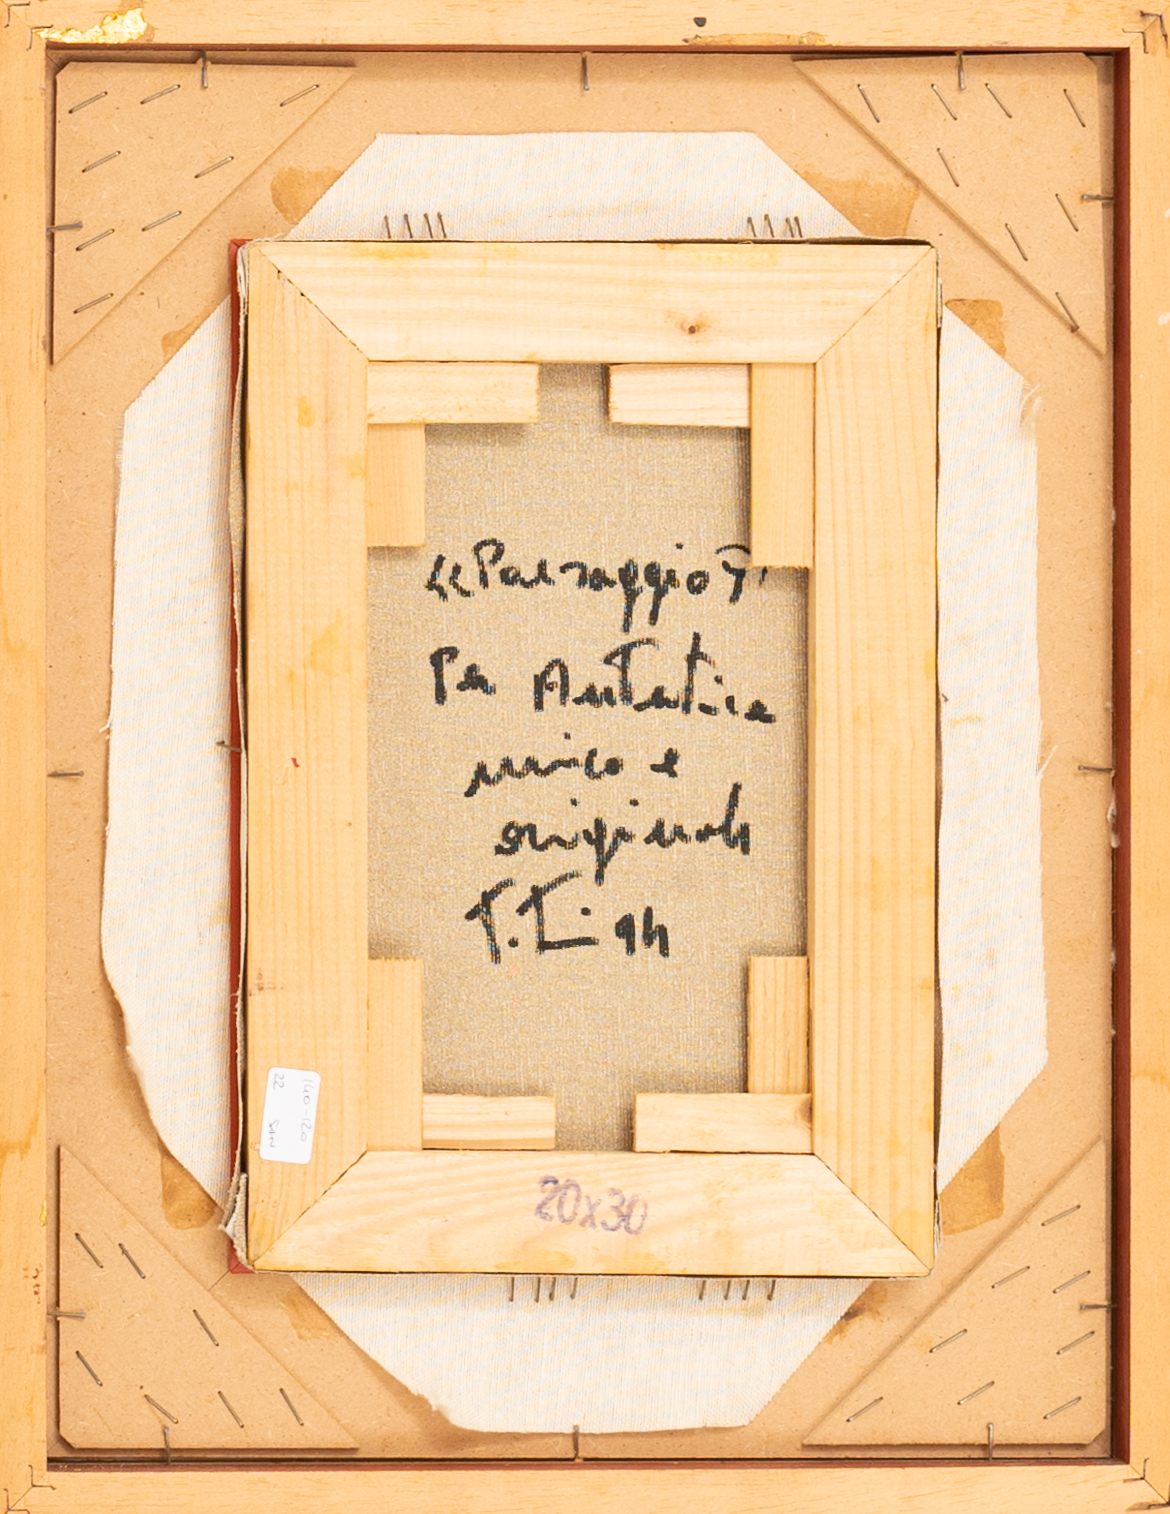 "Paesaggio T"
Per Autentica
unico e
originale
T. 94
20x30
140-120
22
SAN